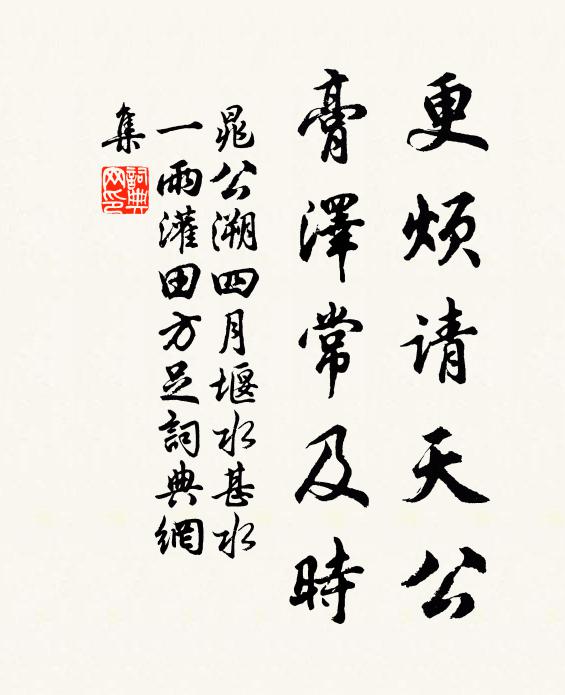 更烦请天公
膏澤常及時
晁公溯四月堰水甚水
一雨灌田方足詞典網
集
詞典
网印